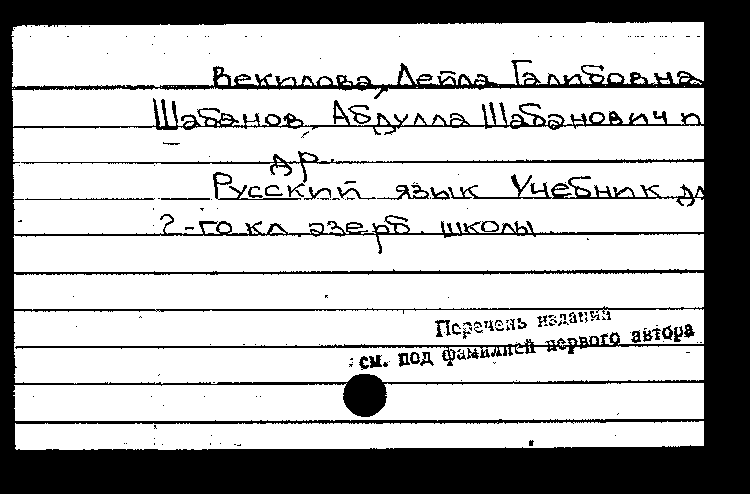 Векилова, Лейла Галибовна
Шабанов, Абдулла Шабанович и
др.
Русский язык Учебник дл
2-го кл. азерб. школы
Перечень изданий
см. под фамилией первого автора